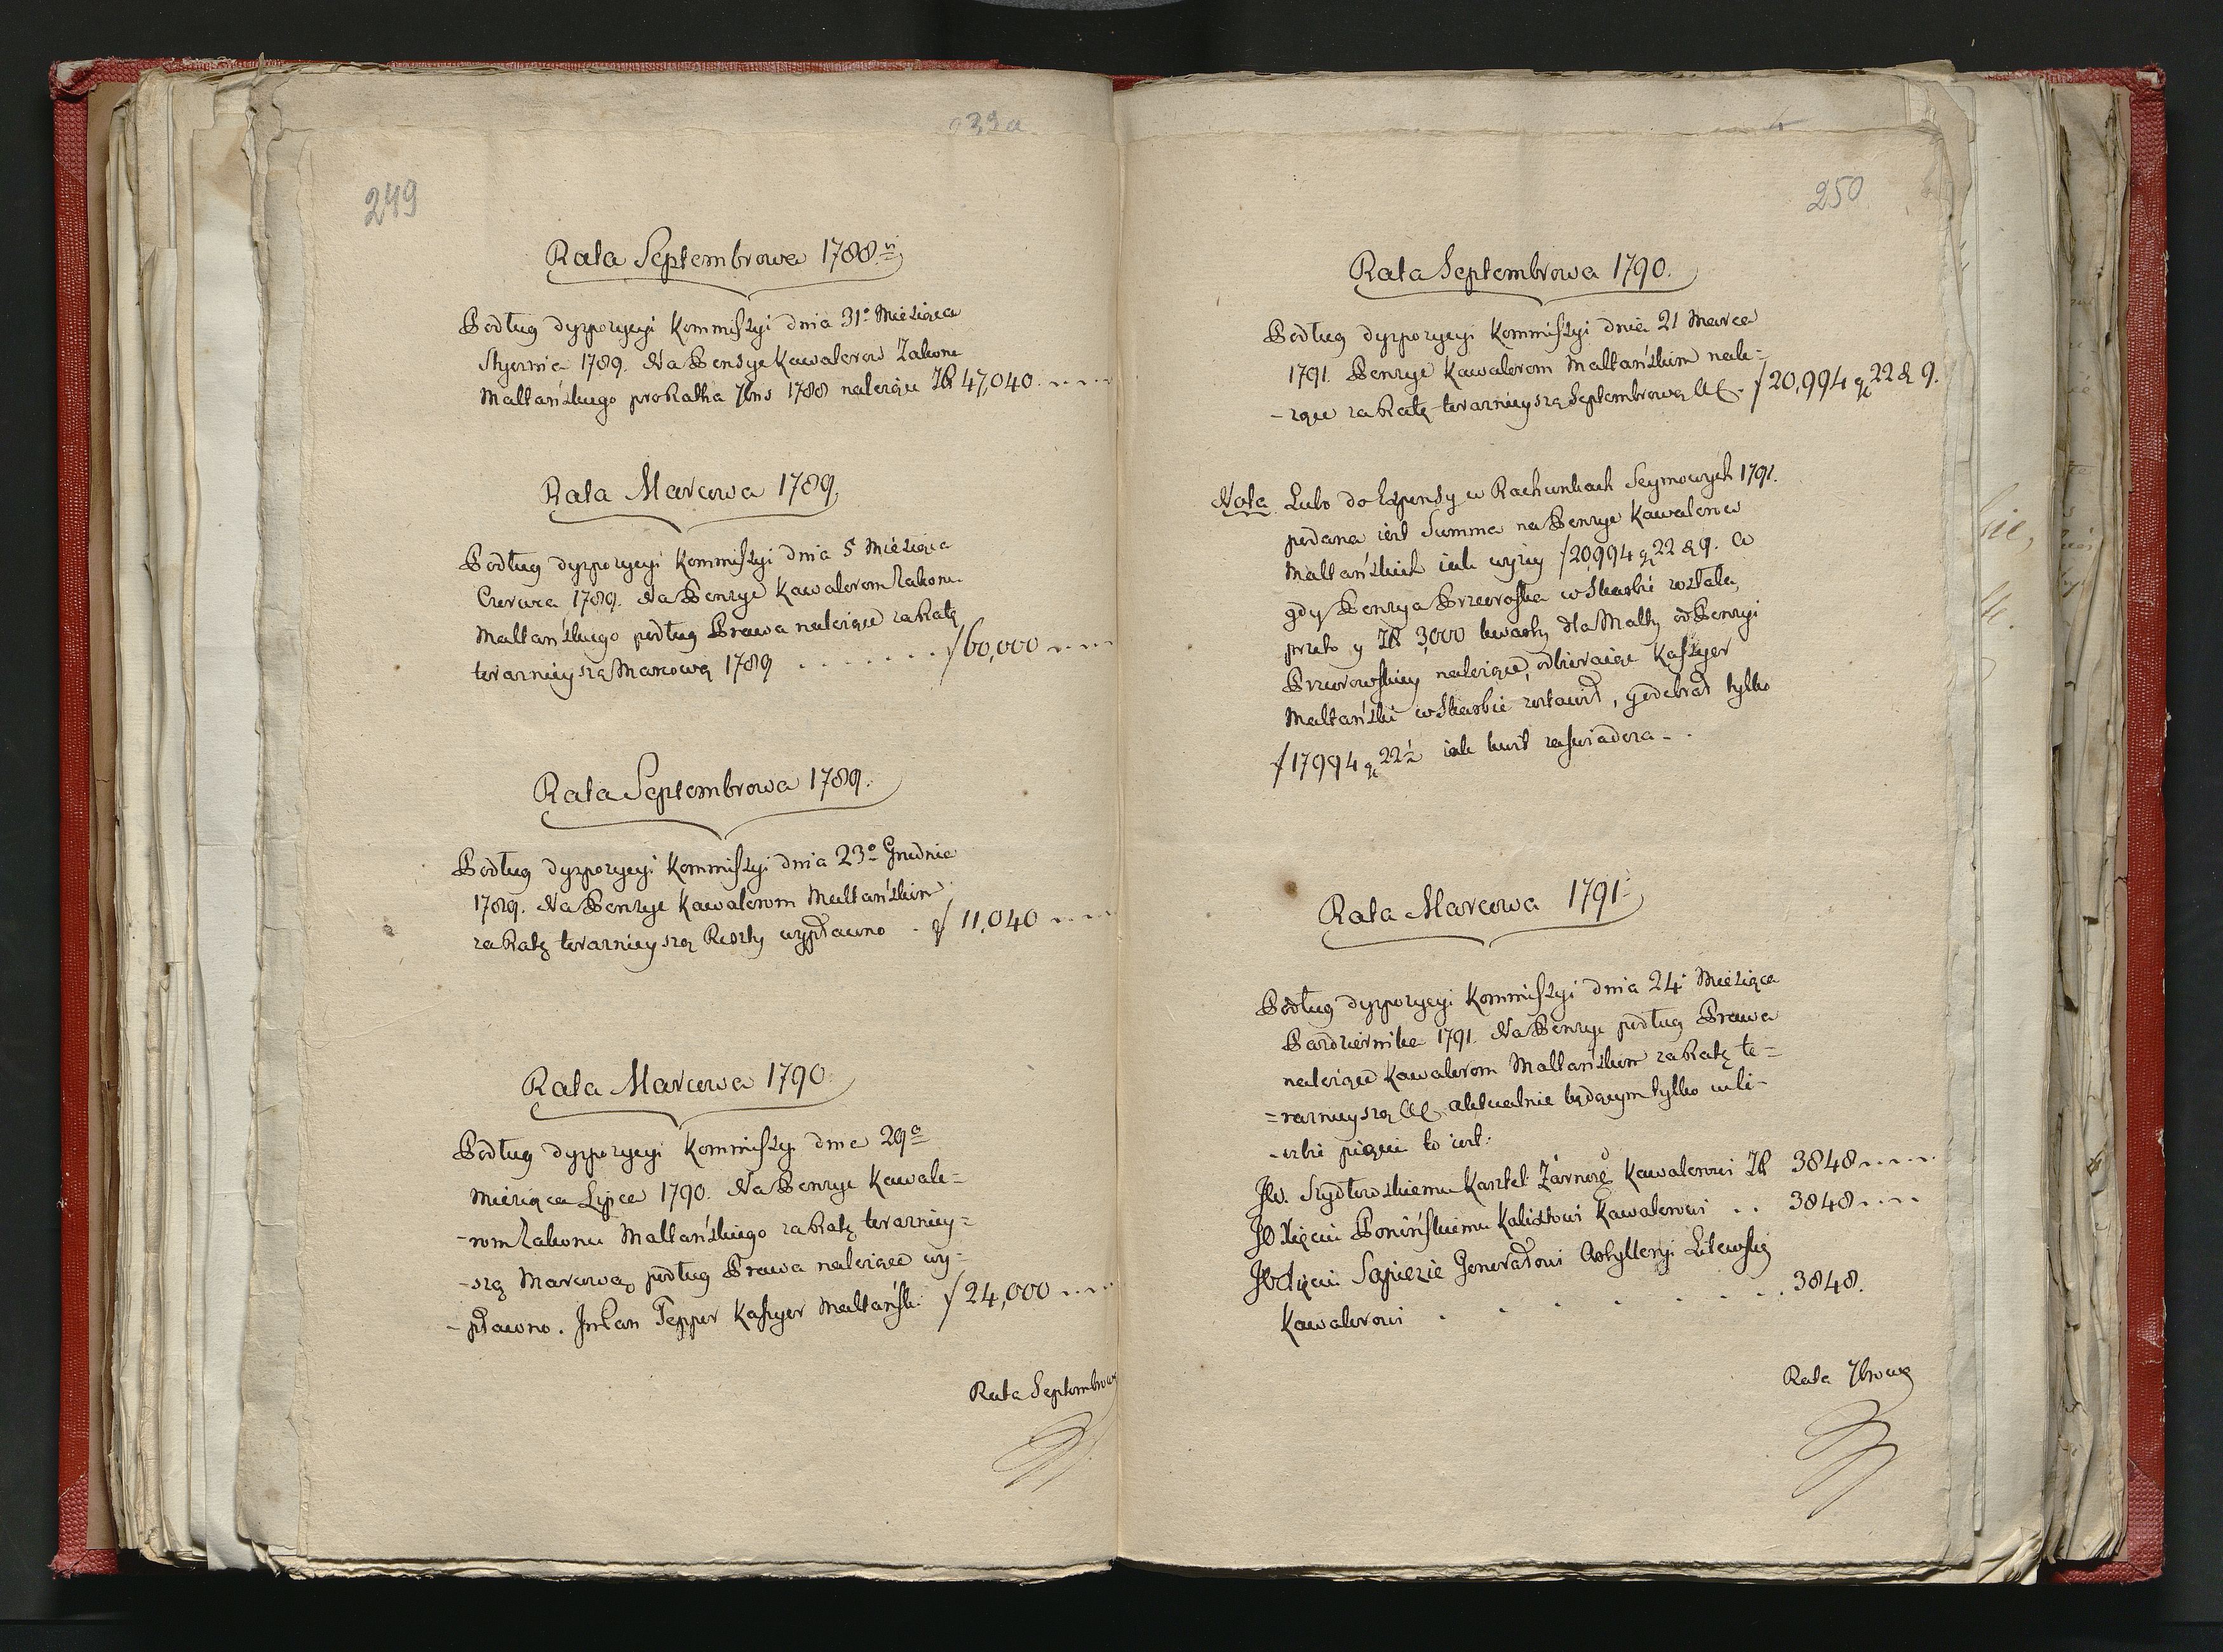 239a.
249
Rata Septembrowa 1788
Podług dyspozycyi Kommissyi dnia 31° Miesiąca
Stycznia 1789. Na Pensye Kawalerow Zakonu
Maltańskiego pro Ratha 7bris 1788 należące Zł 47,040.
Rata Marcowa 1789.
Podług dyspozycyi Kommissyi dnia 5 Miesiąca
Czerwca 1789. Na Pensye Kawalerom Zakonu
Maltańskiego podług Prawa należące za Ratę
teraznieyszą Marcową 1789 . . . . . . . f 60,000
Rata Septembrowa 1789.
Podług dyspozycyi Kommissyi dnia 23° Grudnia
1789. Na Pensye Kawalerom Maltańskim
za Ratę teraznieyszą Reszty wypłacono . f 11,040
Rata Marcowa 1790
Podług dyspozycyi Kommissyi dnia 29a
Miesiąca Lipca 1790. Na Pensye Kawale=
-rom Zakonu Maltańskiego za Ratę terazniey=
-szą Marcową podług Prawa należące wy-
-płacono. JmPan Tepper Kassyer Maltańsk: f 24,000
Rata Septembrowa
250
Rata Septembrowa 1790.
Podług dyspozycyi Kommissyi dnia 21 Marca
1791. Pensye Kawalerom Maltańskim nale=
-żące za Ratę teraznieyszą Septembrową f 20,994 gr 22 & 9.
Nota. Lubo do Expensy w Rachunkach Seymowych 1791.
podana iest Summa na Pensye Kawalerow
Maltańskich iak wyżey f 20994 gr 22 & 9. a
gdy Pensya Brzozowska w Skarbie została,
przeto y Zł 3,000 kwarty dla Malty od Pensyi
należące, odbieraiąc Kassyer
Maltański w Skarbie zostawił, y odebrał tylko
f 17994 gr 22½ iak kwit zaświadcza - .
Rata Marcowa 1791
Podług dyspozycyi Kommissyi dnia 24 Miesiąca
Pazdziernika 1791. Na Pensye podług Prawa
należące Kawalerom Maltańskim za Ratę te=
=raznieyszą aktualnie będącym tylko w li-
-czbie pięciu to iest:
JW. Szydłowskiemu Kasztel: Żarnow: Kawalerowi Zł 3848
JO Xięciu Ponińskiemu Kalixtowi Kawalerowi . . 3848
JO Xięciu Sapiezie Generałowi Artylleryi Litewskiey
Kawalerowi . . . . . . . . 3848.
Rata 7browa